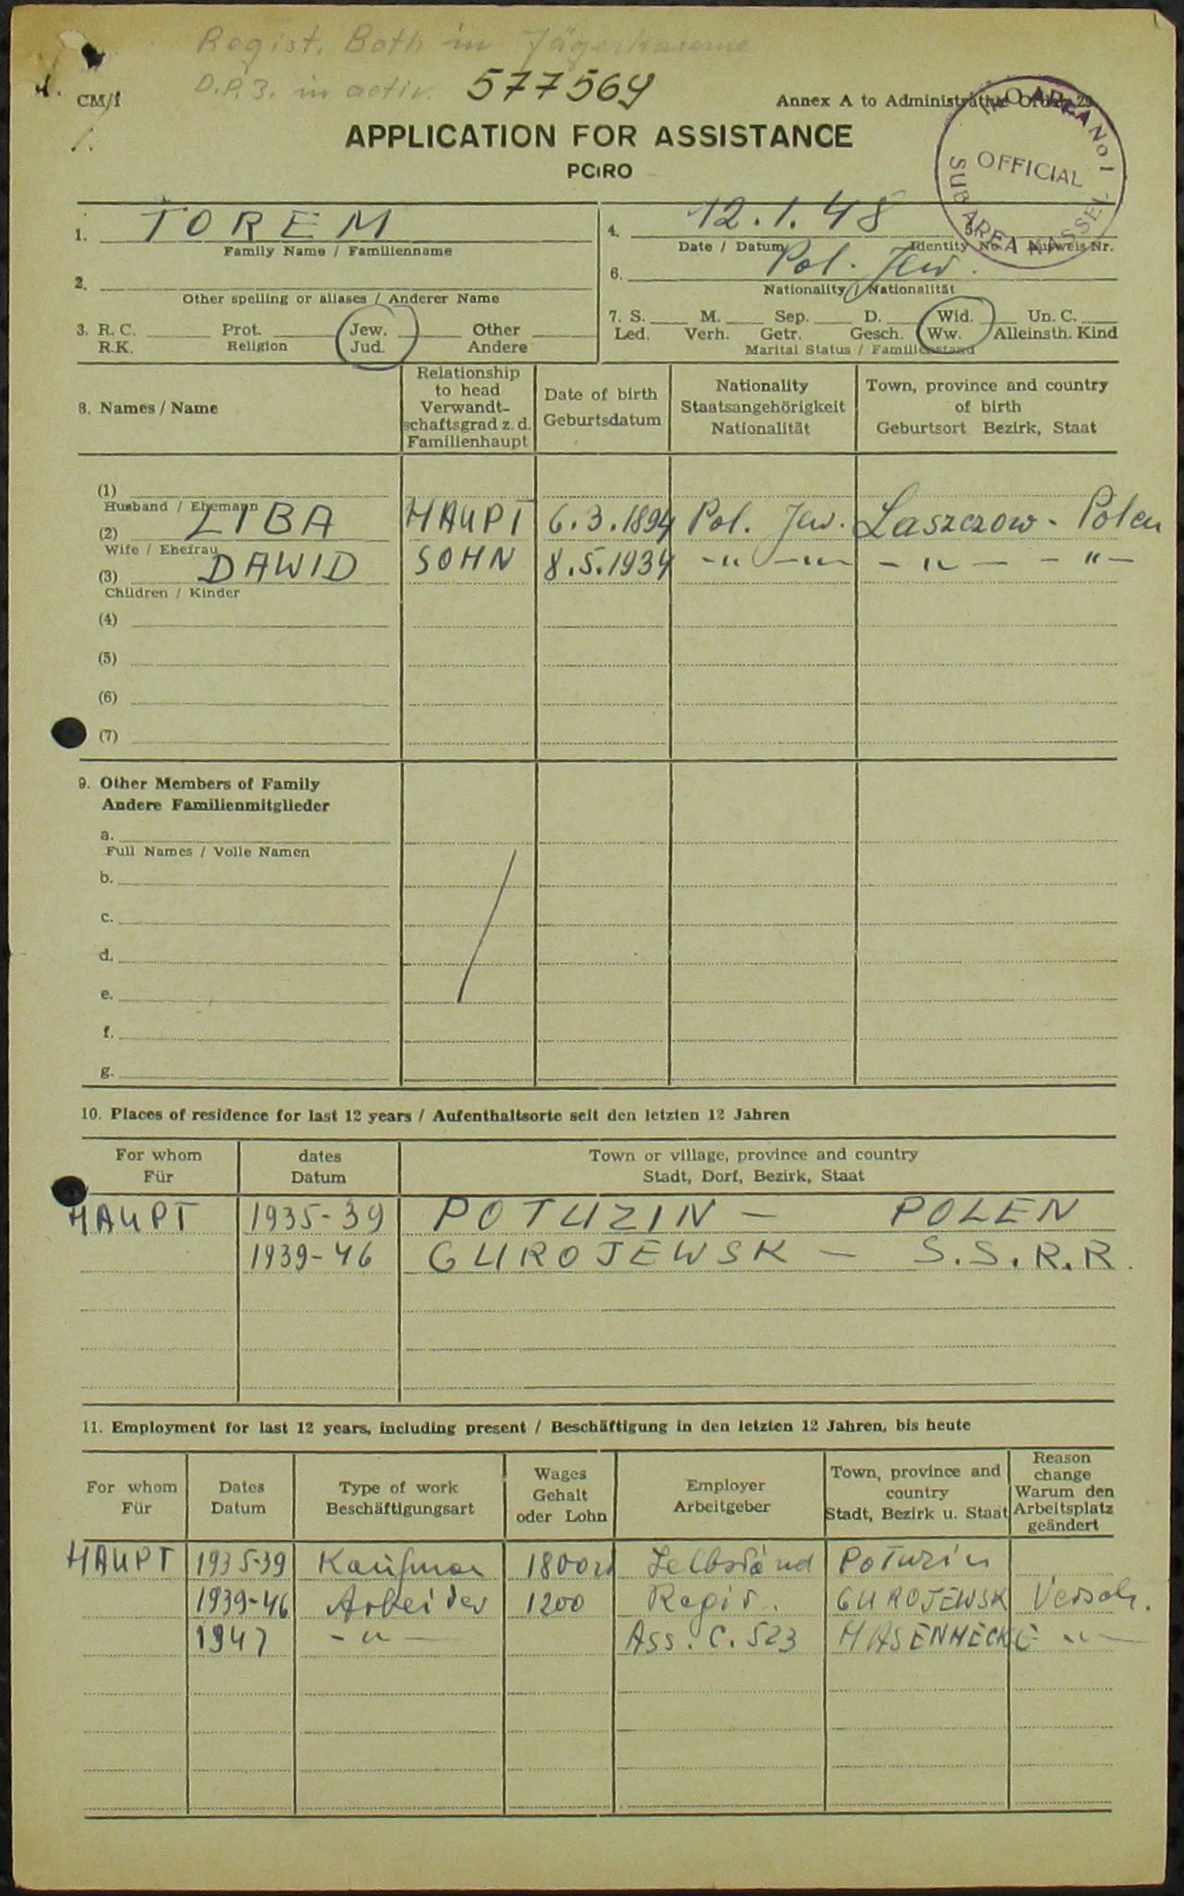 Regist. Both in Jägerkaserne
D.P.3. in activ. 577569
CM/1
Annex A to Administrative Order 29
IRO AREA No 1
OFFICIAL
SUB AREA KASSEL
APPLICATION FOR ASSISTANCE
PCIRO
1. TOREM
Family Name / Familienname
4. 12.1.48 5.
Date / Datum Identity No. Ausweis Nr.
2.
Other spelling or aliases / Anderer Name
6. Pol. Jew.
Nationality / Nationalität
3. R. C. Prot. Jew. Other
R.K. Religion Jud. Andere
7. S. M. Sep. D. Wid. Un. C.
Led. Verh. Getr. Gesch. Ww. Alleinsth. Kind
Marital Status / Familienstand
8. Names / Name
Relationship
to head
Verwandt-
schaftsgrad z. d.
Familienhaupt
Date of birth
Geburtsdatum
Nationality
Staatsangehörigkeit
Nationalität
Town, province and country
of birth
Geburtsort Bezirk, Staat
(1)
Husband / Ehemann
(2) LIBA HAUPT 6.3.1894 Pol. Jew. Laszczow - Polen
Wife / Ehefrau
(3) DAWID SOHN 8.5.1934 -"- -"- - " - - " -
Children / Kinder
(4)
(5)
(6)
(7)
9. Other Members of Family
Andere Familienmitglieder
a.
Full Names / Volle Namen
b.
c.
d.
e.
f.
g.
10. Places of residence for last 12 years / Aufenthaltsorte seit den letzten 12 Jahren
For whom
Für
dates
Datum
Town or village, province and country
Stadt, Dorf, Bezirk, Staat
HAUPT 1935-39 POTUZIN - POLEN
1939-46 GUROJEWSK - S.S.R.R.
11. Employment for last 12 years, including present / Beschäftigung in den letzten 12 Jahren, bis heute
For whom
Für
Dates
Datum
Type of work
Beschäftigungsart
Wages
Gehalt
oder Lohn
Employer
Arbeitgeber
Town, province and
country
Stadt, Bezirk u. Staat
Reason
change
Warum den
Arbeitsplatz
geändert
HAUPT 1935-39 Kaufman 1800 zl Selbständ Potuzin
1939-46 Arbeiter 1200 Regir. GUROJEWSK Versch.
1947 - " - Ass. C. 523 HASENHECKE - " -